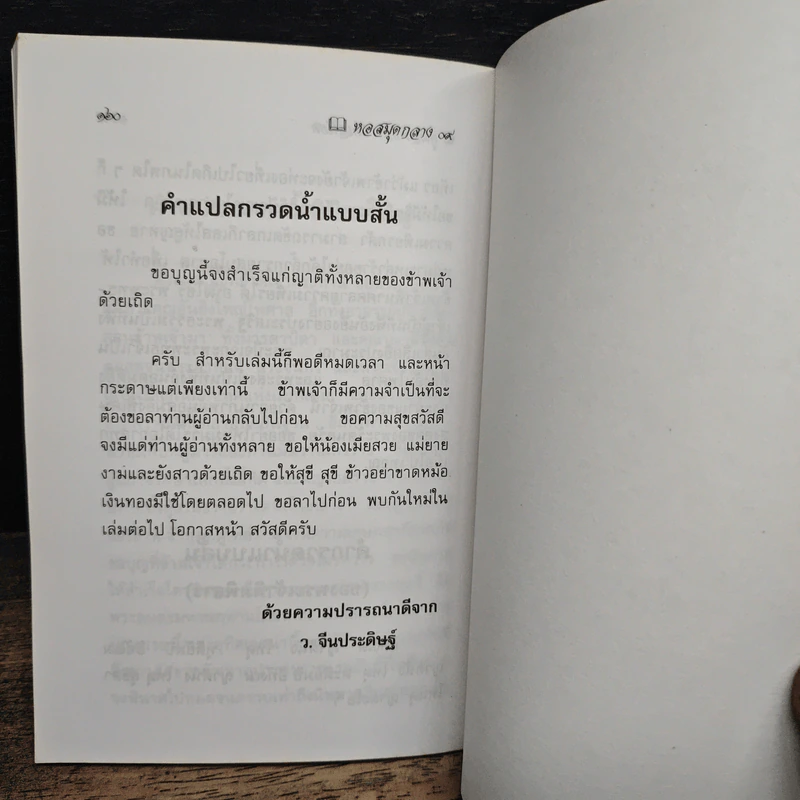 ๑๖๐
หอสมุดกลาง ๐๙
คำแปลกรวดน้ำแบบสั้น
ขอบุญนี้จงสำเร็จแก่ญาติทั้งหลายของข้าพเจ้า
ด้วยเถิด
ครับ สำหรับเล่มนี้ก็พอดีหมดเวลา และหน้า
กระดาษแต่เพียงเท่านี้ ข้าพเจ้าก็มีความจำเป็นที่จะ
ต้องขอลาท่านผู้อ่านกลับไปก่อน ขอความสุขสวัสดี
จงมีแด่ท่านผู้อ่านทั้งหลาย ขอให้น้องเมียสวย แม่ยาย
งามและยังสาวด้วยเถิด ขอให้สุขี สุขี ข้าวอย่าขาดหม้อ
เงินทองมีใช้โดยตลอดไป ขอลาไปก่อน พบกันใหม่ใน
เล่มต่อไป โอกาสหน้า สวัสดีครับ
ด้วยความปรารถนาดีจาก
ว. จีนประดิษฐ์